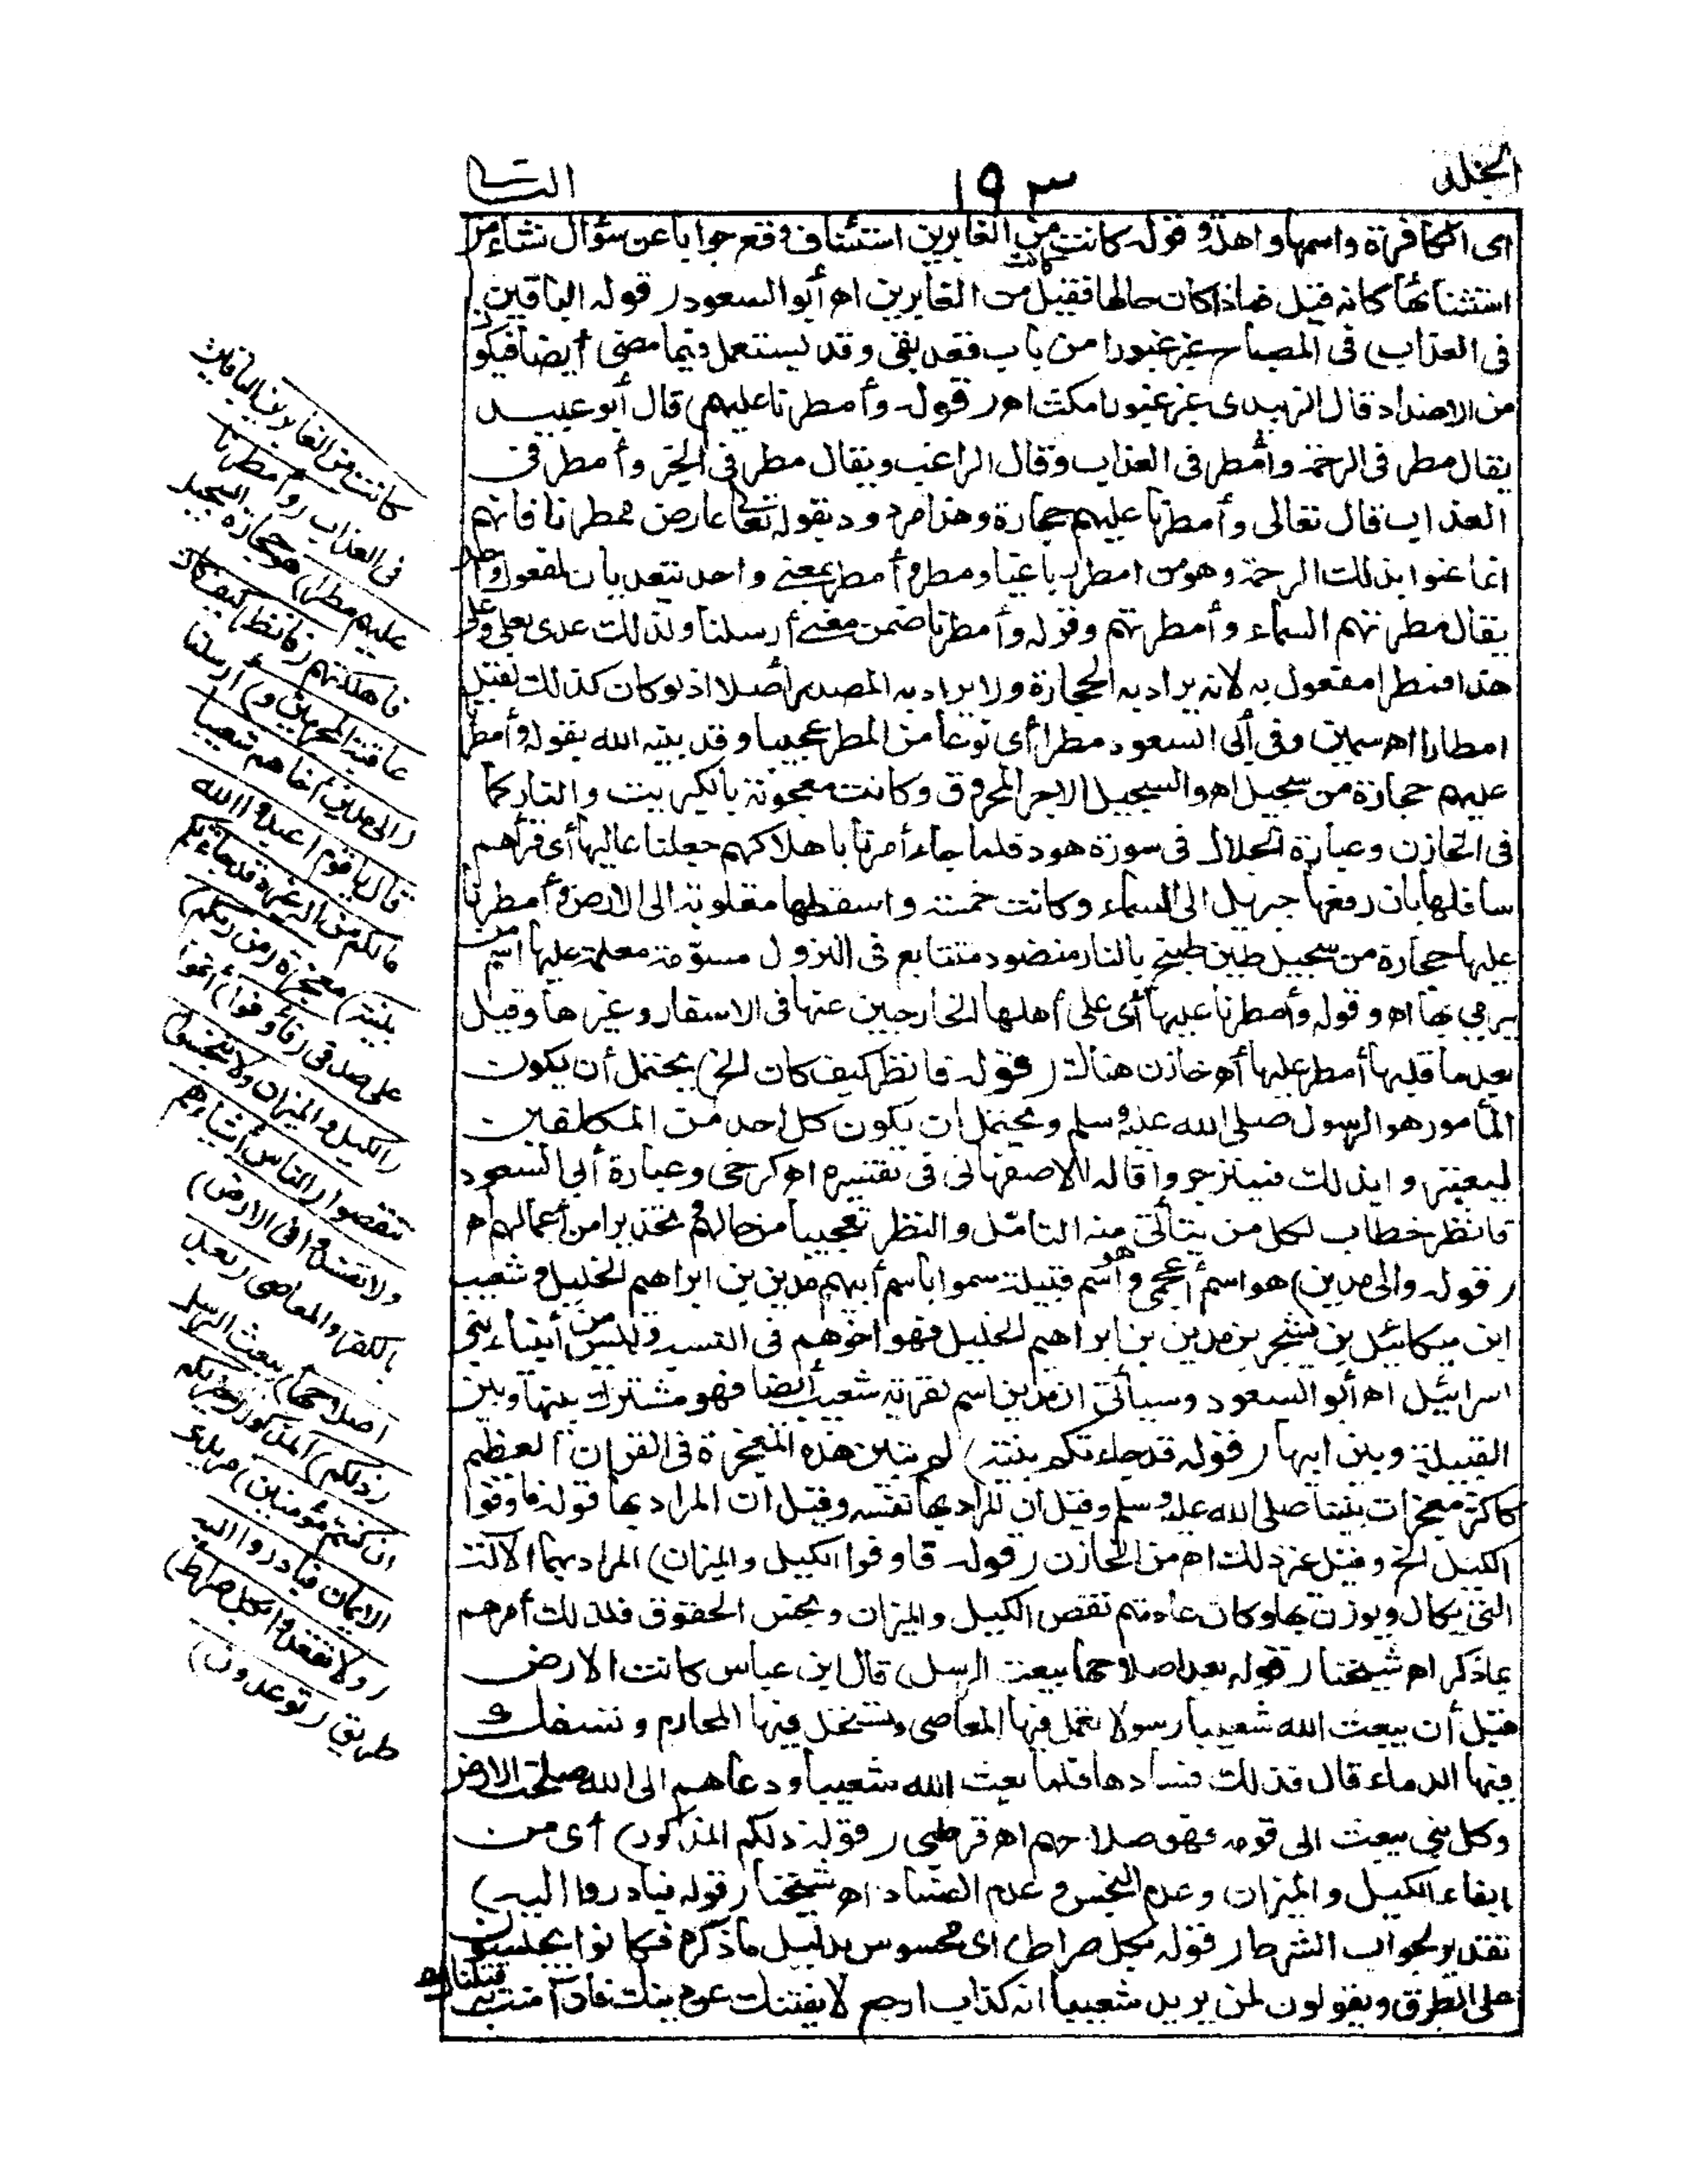 المجلد
١٩٣
الثانى
اى الكافرة واسمها واهلة وقوله كانت من الغابرين استئناف وقع جوابا عن سؤال نشاء من
استثنائها كانه قيل فماذا كان حالها فقيل كانت من الغابرين اه أبو السعود (قوله الباقين
فى العذاب) فى المصباح غبر غبورا من باب قعد بقى وقد يستعمل فيما مضى أيضا فيكون
من الاضداد قال الزبيدى غبر غبورا مكث اه (قوله وأمطرنا عليهم) قال أبو عبيد
يقال مطر فى الرحمة وأمطر فى العذاب وقال الراغب ويقال مطر فى الخير وأمطر فى
العذاب قال تعالى وأمطرنا عليهم حجارة وهذا مردود بقوله تعالى عارض ممطرنا فانهم
انما عنوا بذلك الرحمة وهو من امطر رباعيا ومطر وأمطر بمعنى واحد يتعديان لمفعول واحد
يقال مطرتهم السماء وأمطرتهم وقوله وأمطرنا ضمن معنى أرسلنا ولذلك عدى بعلى وعلى
هذا فمطرا مفعول به لانه يراد به الحجارة ولا يراد به المصدر أصلا اذ لو كان كذلك لقيل
امطارا اه سمين وفى أبى السعود مطرا أى نوعا من المطر عجيبا وقد بينه الله بقوله وأمطرنا
عليهم حجارة من سجيل اه والسجيل الاجر المحروق وكانت معجونة بالكبريت والنار كما
فى الخازن وعبارة الجلال فى سورة هود فلما جاء أمرنا باهلاكهم جعلنا عاليها أى قراهم
سافلها بان رفعها جبريل الى السماء وكانت خمسة واسقطها مقلوبة الى الارض وأمطرنا
عليها حجارة من سجيل طين طبخ بالنار منضود متتابع فى النزول مسومة معلمة عليها اسم من
يرمى بها اه وقوله وأمطرنا عليها أى على أهلها الخارجين عنها فى الاسفار وغيرها وقيل
بعدما قلبها أمطر عليها أه خازن هناك (قوله فانظر كيف كان الخ) يحتمل أن يكون
المأمور هو الرسول صلى الله عليه وسلم ويحتمل ان يكون كل احد من المكلفين
ليعتبروا بذلك فينزجروا قاله الاصفهانى فى تفسيره اه كرخى وعبارة أبى السعود
فانظر خطاب لكل من يتأتى منه التامل والنظر تعجيبا من حالهم وتحذيرا من أعمالهم اه
(قوله والى مدين) هو اسم أعجمى وهو اسم قبيلة سموا باسم أبيهم مدين بن ابراهيم الخليل وشعيب
ابن ميكائيل بن يشجر بن مدين بن ابراهيم الخليل فهو اخوهم فى النسب وليس من أنبياء بنى
اسرائيل اه أبو السعود وسيأتى ان مدين اسم لقرية شعيب أيضا فهو مشترك بينها وبين
القبيلة وبين ابيها (قوله قد جاءتكم بينة) لم تبين هذه المعجزة فى القران العظيم
كاكثر معجزات نبينا صلى الله عليه وسلم وقيل ان المراد بها نفسه وقيل ان المراد بها قوله فاوفوا
الكيل الخ وقيل غير ذلك اه من الخازن (قوله فاوفوا الكيل والميزان) المراد بهما الالة
التى يكال ويوزن بها وكان عادتهم نقص الكيل والميزان وبخس الحقوق فلذلك أمرهم
بماذكر اه شيخنا (قوله بعد اصلاحها ببعث الرسل) قال ابن عباس كانت الارض
قبل أن يبعث الله شعيبا رسولا تعمل فيها المعاصى وتستحل فيها المحارم وتسفك
فيها الدماء قال فذلك فسادها فلما بعث الله شعيبا ودعاهم الى الله صلحت الارض
وكل نبى يبعث الى قومه فهو صلاحهم اه قرطبى (قوله ذلكم المذكور) أى من
ايفاء الكيل والميزان وعدم البخس وعدم الفساد اه شيخنا (قوله فبادروا اليه)
تقدير لجواب الشرط (قوله بكل صراط) اى محسوس بدليل ماذكره فكانوا يجلسون
على الطرق ويقولون لمن يريد شعيبا انه كذاب ارجع لا يفتنك عن دينك فان آمنت به قتلناك اه
كانت من الغابرين الباقين
فى العذاب (وأمطرنا
عليهم مطرا) هو حجارة السجيل
فاهلكتهم (فانظر كيف كان
عاقبة المجرمين و) أرسلنا
(الى مدين أخاهم شعيبا
قال يا قوم اعبدوا الله
مالكم من اله غيره قد جاءتكم
بينة) معجزة (من ربكم)
على صدقى (فأوفوا) أتموا
(الكيل والميزان ولا تبخسوا)
تنقصوا (الناس أشياءهم
ولا تفسدوا فى الارض)
بالكفر والمعاصى (بعد
اصلاحها) ببعث الرسل
(ذلكم) المذكور (خير لكم
ان كنتم مؤمنين) مريدى
الايمان فبادروا اليه
(ولا تقعدوا بكل صراط)
طريق (توعدون)